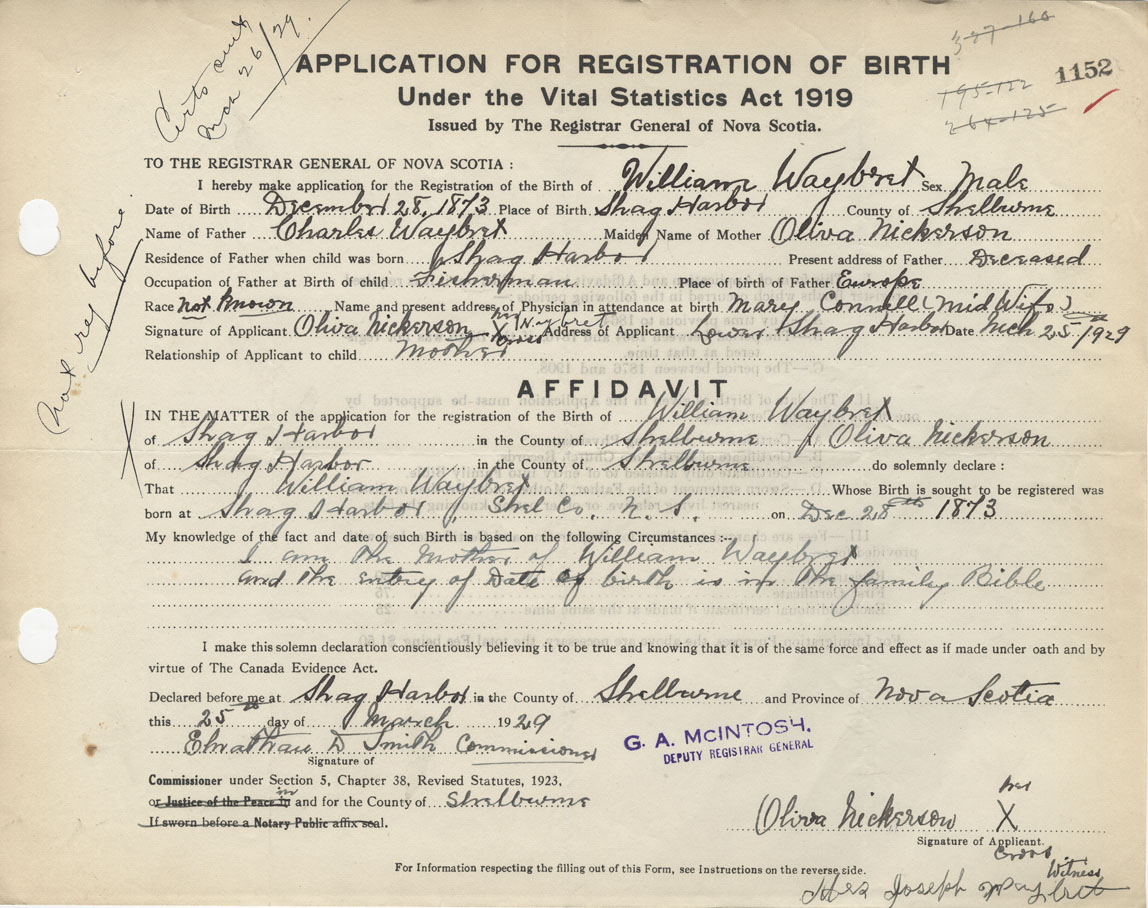 Certs sent
Mch 26/29.
327-160
195-122
264-125
1152
APPLICATION FOR REGISTRATION OF BIRTH
Under the Vital Statistics Act 1919
Issued by The Registrar General of Nova Scotia.
TO THE REGISTRAR GENERAL OF NOVA SCOTIA :
I hereby make application for the Registration of the Birth of William Waybret Sex Male
Date of Birth December 28, 1873 Place of Birth Shag Harbor County of Shelburne
Name of Father Charles Waybret Maiden Name of Mother Oliva Nickerson
Residence of Father when child was born Shag Harbor Present address of Father Deceased
Occupation of Father at Birth of child Fisherman Place of birth of Father Europe
Race not known Name and present address of Physician in attendance at birth Mary Connell (Mid Wife)
Signature of Applicant Oliva Nickerson her X cross Waybret Address of Applicant Lower Shag Harbor Date Mch 25/1929
Relationship of Applicant to child Mother
Not reg before
AFFIDAVIT
IN THE MATTER of the application for the registration of the Birth of William Waybret
of Shag Harbor in the County of Shelburne I Oliva Nickerson
of Shag Harbor in the County of Shelburne do solemnly declare :
That William Waybret Whose Birth is sought to be registered was
born at Shag Harbor, Shel Co. N. S. on Dec 28th 1873
My knowledge of the fact and date of such Birth is based on the following Circumstances :-
I am the Mother of William Waybret
and the entery of Date of birth is in the family Bible
I make this solemn declaration conscientiously believing it to be true and knowing that it is of the same force and effect as if made under oath and by
virtue of The Canada Evidence Act.
Declared before me at Shag Harbor in the County of Shelburne and Province of Nova Scotia
this 25th day of March 1929
Elnathan D Smith Commissioner
Signature of
G. A. MCINTOSH.
DEPUTY REGISTRAR GENERAL
Commissioner under Section 5, Chapter 38, Revised Statutes, 1923,
or Justice of the Peace in in and for the County of Shelburne
If sworn before a Notary Public affix seal.
Oliva Nickerson her X
Signature of Applicant.
Cross.
For Information respecting the filling out of this Form, see Instructions on the reverse side.
Witness
Mrs Joseph Waybret